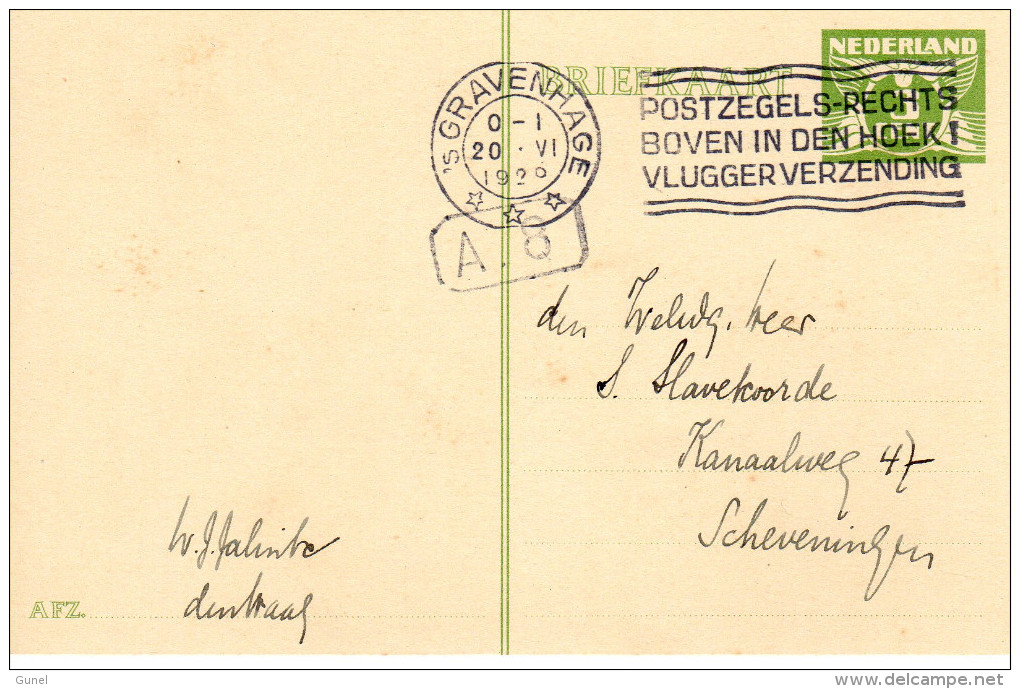 NEDERLAND
BRIEFKAART
'S GRAVENHAGE
0-1
20 · VI
POSTZEGELS-RECHTS
BOVEN IN DEN HOEK!
VLUGGER VERZENDING
A. 8
den Weledg. Heer
S. Slavekoorde
Kanaalweg 47
Scheveningen
W.J.
den Haag
AFZ.
Gunel
delcampe.net